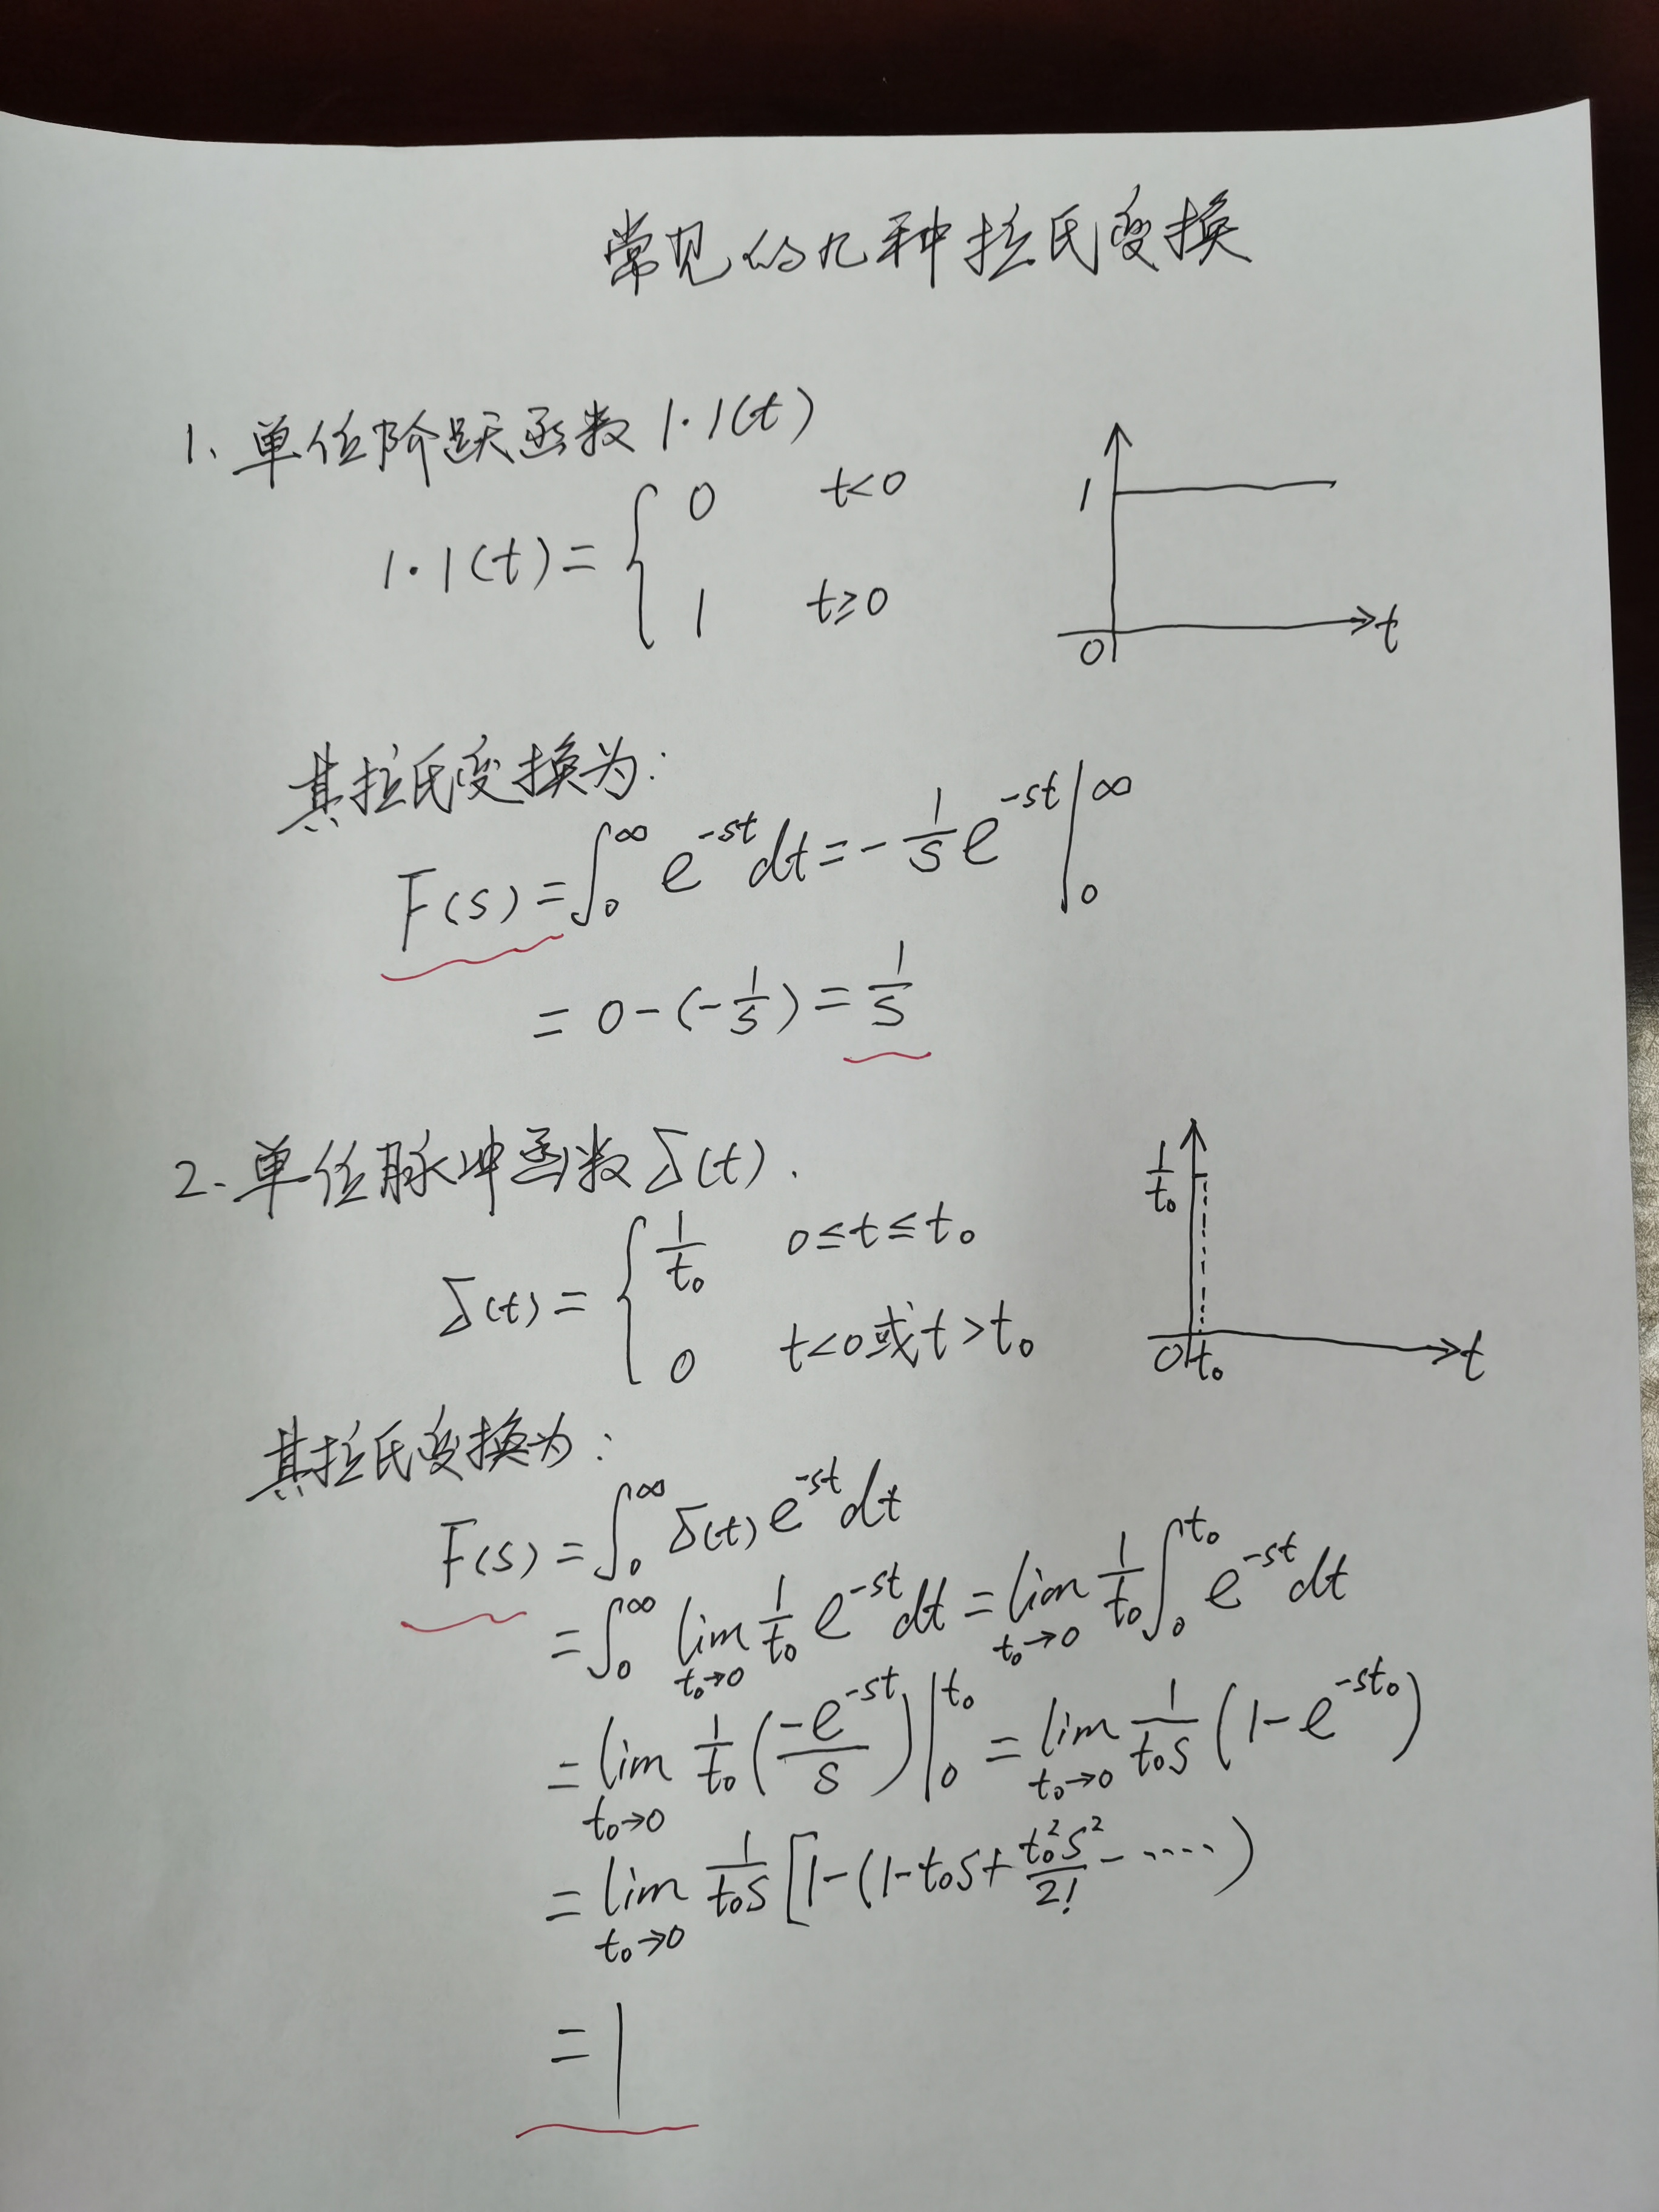 常见的九种拉氏变换
1、单位阶跃函数 1·1(t)
1·1(t) = { 0 t<0
1 t≥0
1
0 t
其拉氏变换为:
F(s) = ∫₀^∞ e^{-st} dt = -\frac{1}{s} e^{-st} |₀^∞
= 0 - (-\frac{1}{s}) = \frac{1}{s}
2、单位脉冲函数 δ(t).
δ(t) = { \frac{1}{t₀} 0≤t≤t₀
0 t<0或t>t₀
\frac{1}{t₀}
0 t₀ t
其拉氏变换为:
F(s) = ∫₀^∞ δ(t) e^{-st} dt
= ∫₀^∞ lim_{t₀→0} \frac{1}{t₀} e^{-st} dt = lim_{t₀→0} \frac{1}{t₀} ∫₀^{t₀} e^{-st} dt
= lim_{t₀→0} \frac{1}{t₀} (\frac{-e^{-st}}{s}) |₀^{t₀} = lim_{t₀→0} \frac{1}{t₀s} (1 - e^{-st₀})
= lim_{t₀→0} \frac{1}{t₀s} [1-(1-t₀s+\frac{t₀²s²}{2!}-·····)
= 1